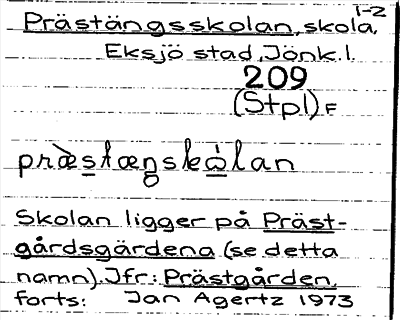 1-2
Prästängsskolan, skola,
Eksjö stad, Jönk. l.
209
(Stpl) F
præ̀stængskὼlan
Skolan ligger på Präst-
gårdsgärdena (se detta
namn). Jfr: Prästgården.
forts: Jan Agertz 1973